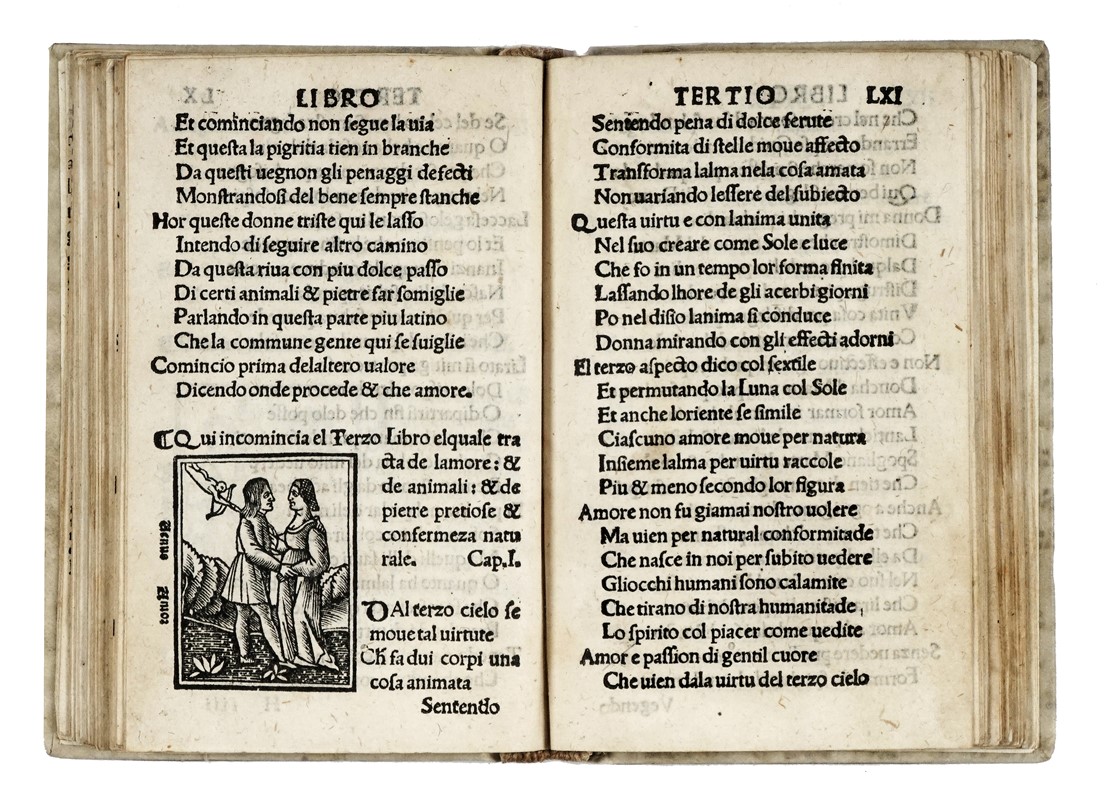 LIBRO
Et cominciando non ſegue la uia
Et queſta la pigritia tien in branche
Da queſti uegnon gli penaggi defecti
Monſtrandoſi del bene ſempre ſtanche
Hor queſte donne triſte qui le laſſo
Intendo di ſeguire altro camino
Da queſta riua con piu dolce paſſo
Di certi animali & pietre far ſomiglie
Parlando in queſta parte piu latino
Che la commune gente qui ſe ſuiglie
Comincio prima delaltero ualore
Dicendo onde procede & che amore.
¶Qui incomincia el Terzo Libro elquale tra
cta de lamore: &
de animali: & de
pietre pretioſe &
confermeza natu
rale. Cap.I.
Venus Amor
DAl terzo cielo ſe
moue tal uirtute
Ch fa dui corpi una
coſa animata
Sentendo
TERTIO LXI
Sentendo pena di dolce ferute
Conformita di ſtelle moue affecto
Transforma lalma nela coſa amata
Non uariando leſſere del ſubiecto
Queſta uirtu e con lanima unita
Nel ſuo creare come Sole e luce
Che fo in un tempo lor forma finita
Laſſando lhore de gli acerbi giorni
Po nel diſio lanima ſi conduce
Donna mirando con gli effecti adorni
El terzo aſpecto dico col ſextile
Et permutando la Luna col Sole
Et anche loriente ſe ſimile
Ciaſcuno amore moue per natura
Inſieme lalma per uirtu raccole
Piu & meno ſecondo lor figura
Amore non fu giamai noſtro uolere
Ma uien per natural conformitade
Che naſce in noi per ſubito uedere
Gliocchi humani ſono calamite
Che tirano di noſtra humanitade,
Lo ſpirito col piacer come uedite
Amor e paſſion di gentil cuore
Che uien dala uirtu del terzo cielo